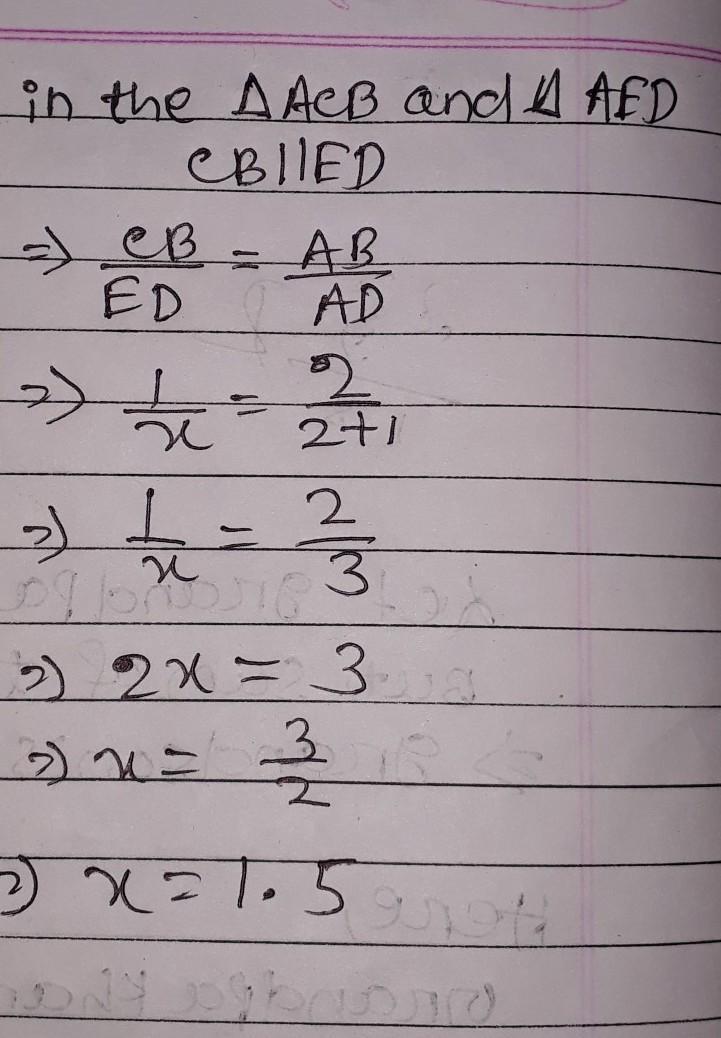 in the △ ACB and △ AED
CB||ED
⇒ CB/ED = AB/AD
⇒ 1/x = 2/2+1
⇒ 1/x = 2/3
⇒ 2x = 3
⇒ x = 3/2
⇒ x = 1.5